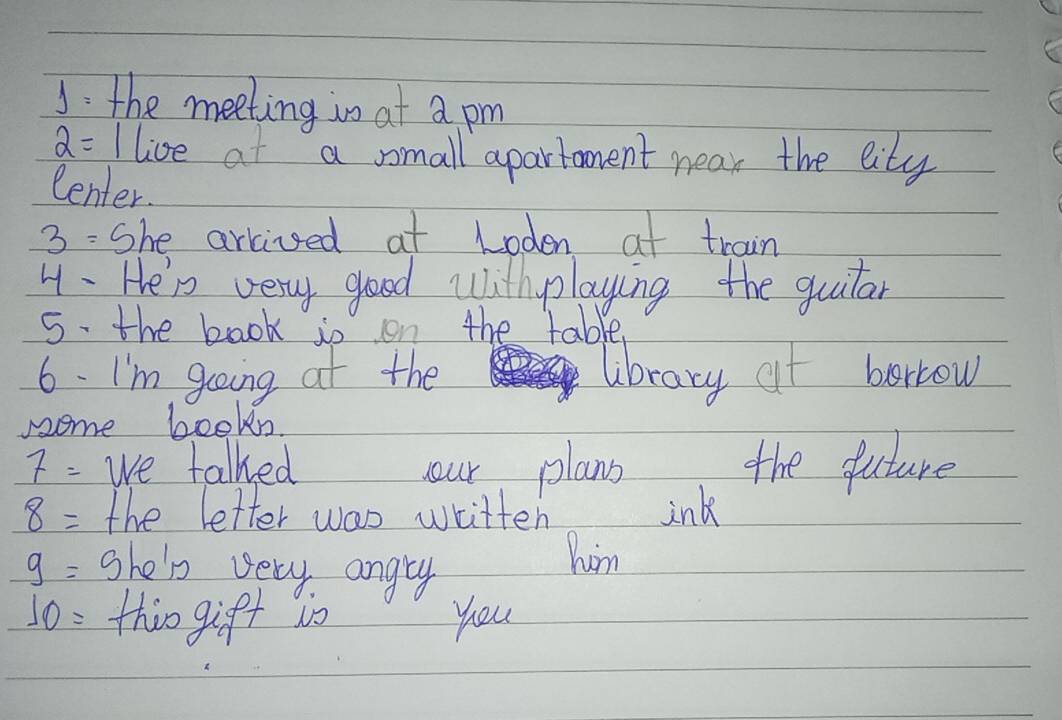 1 = the meeting is at 2 pm
2 = I live at a small apartament near the city
Center.
3 = She arrived at Loden at train
4 - He's very good with playing the guitar
5 - the book is on the table,
6 - I'm going at the library at borrow
some books.
7 = we talked our plans the future
8 = the letter was written ink
9 = She's very angry him
10 = this gift is you